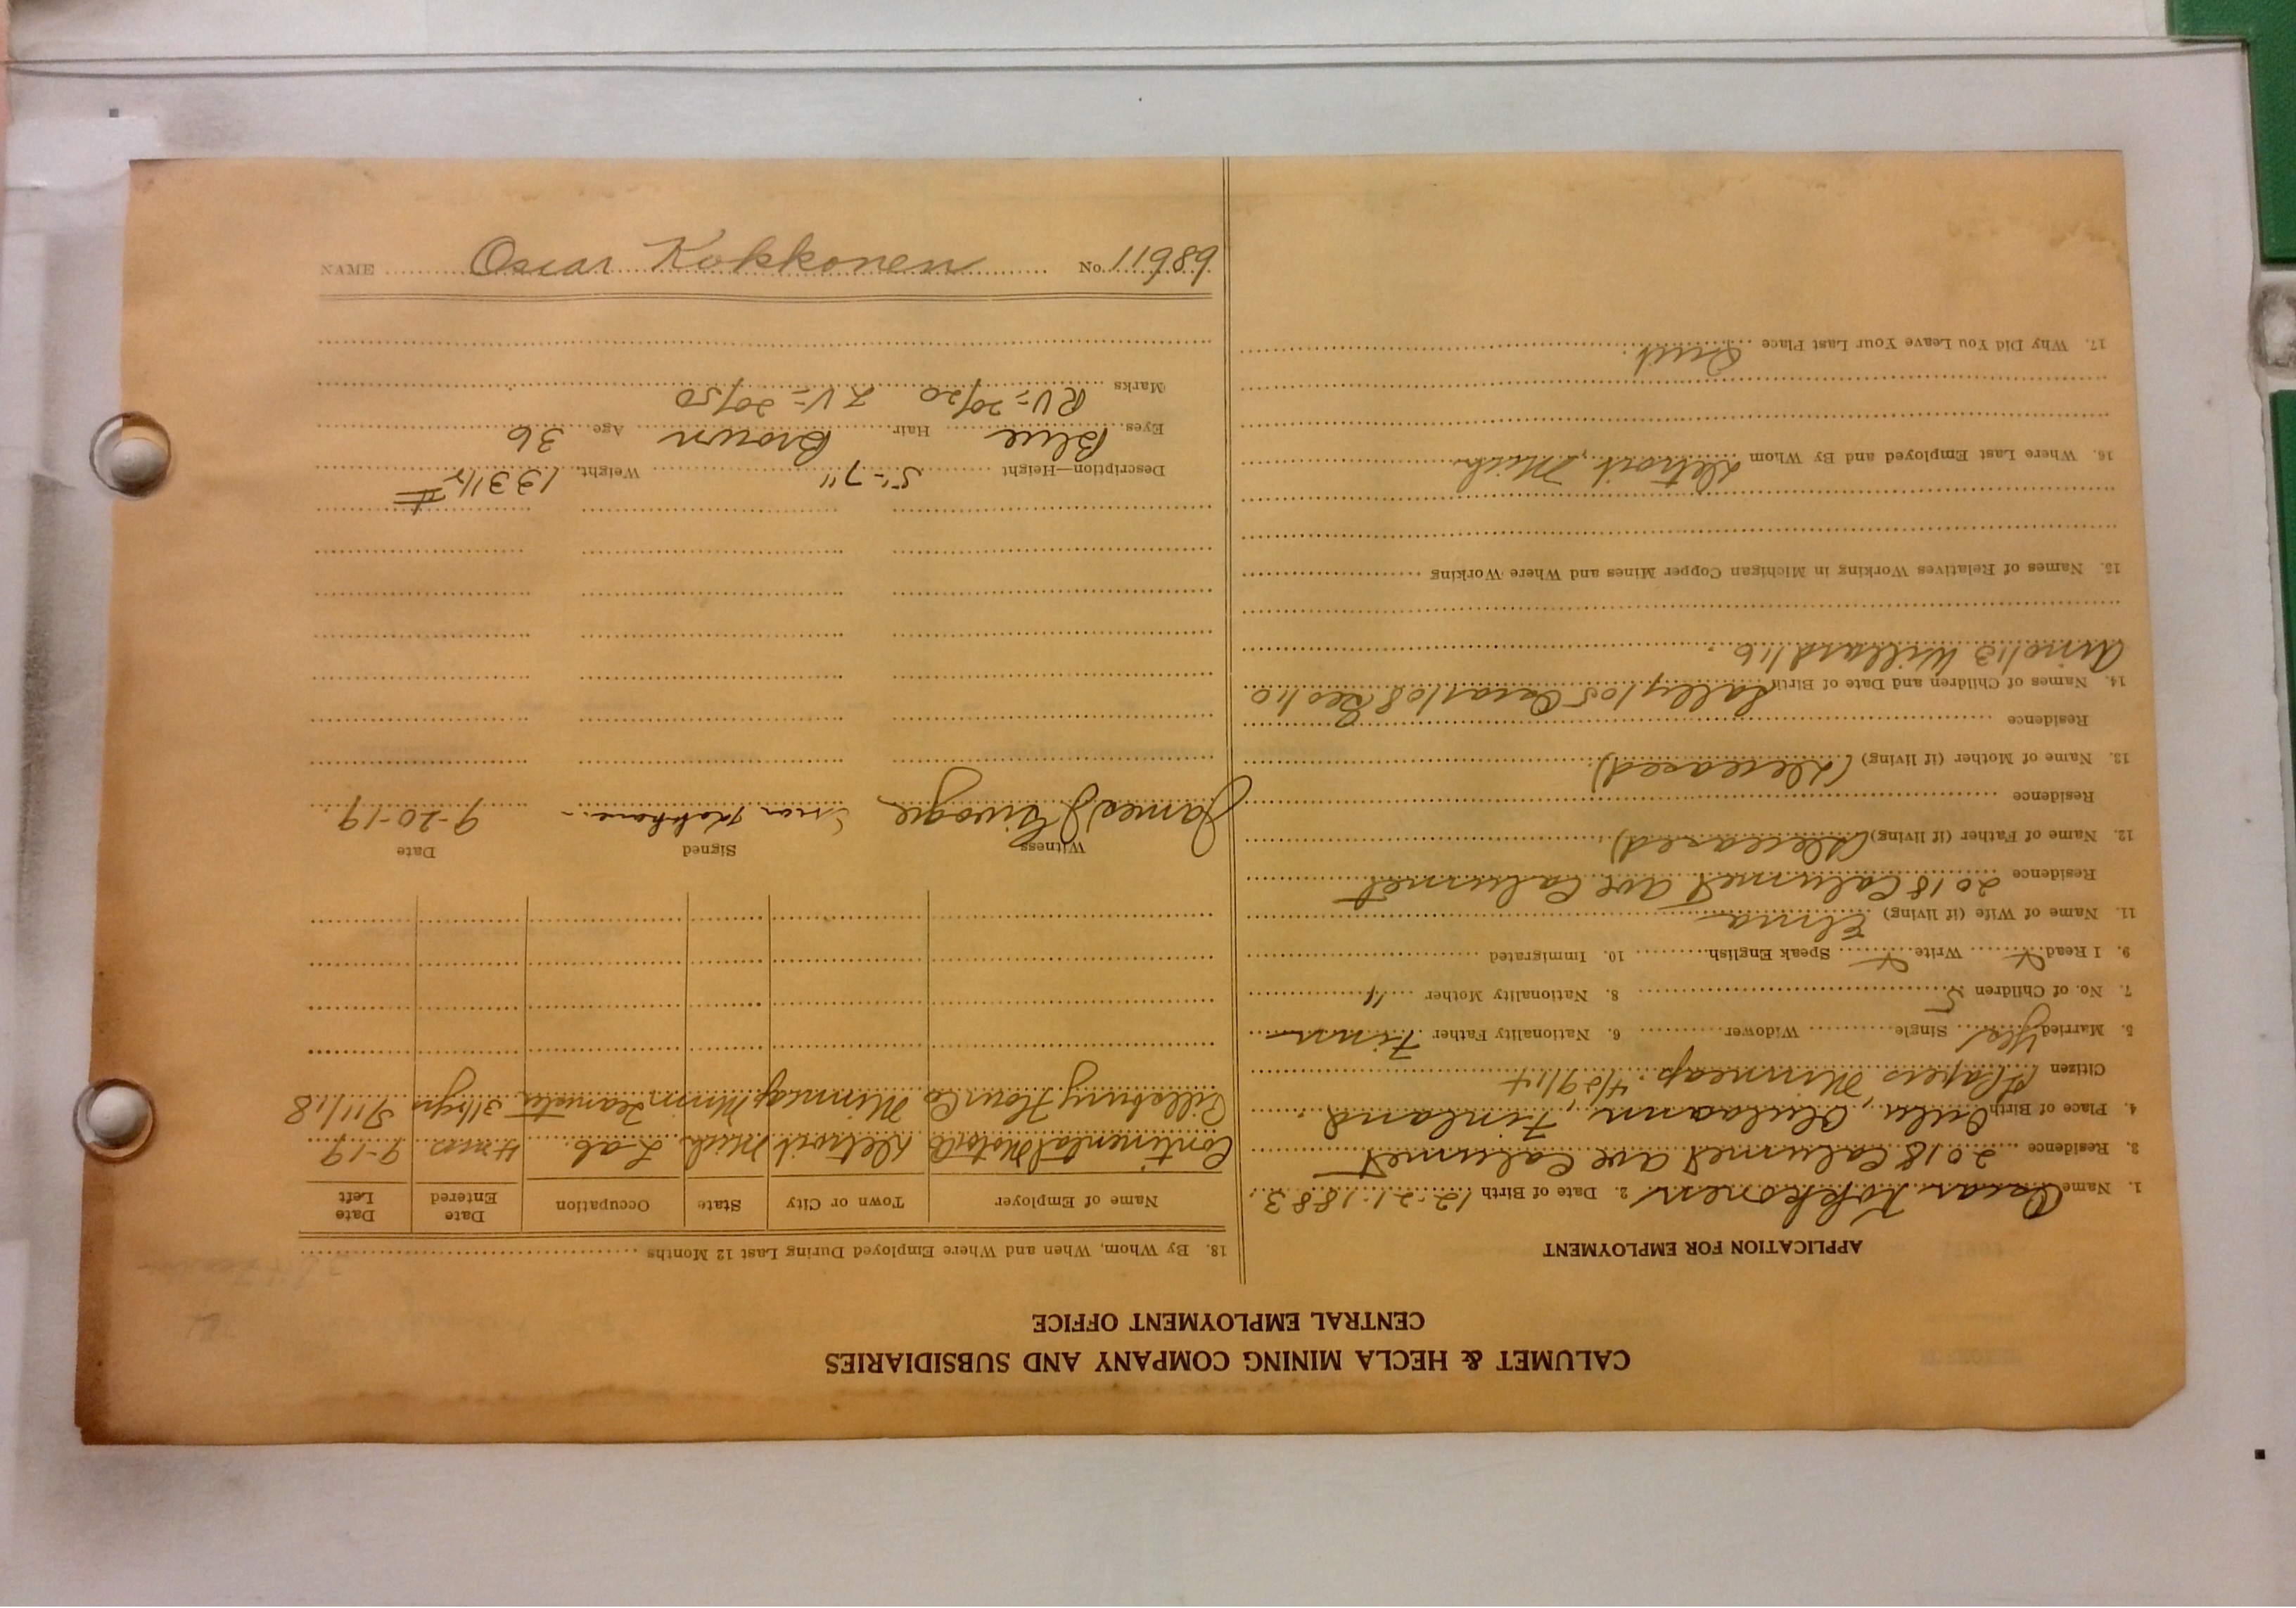 CALUMET & HECLA MINING COMPANY AND SUBSIDIARIES
CENTRAL EMPLOYMENT OFFICE
APPLICATION FOR EMPLOYMENT
1. Name Oscar Kokkonen 2. Date of Birth 12-21-1883
3. Residence 2018 Calumet Ave Calumet
4. Place of Birth Oulu, Finland
Citizen Papers Minneap. 4/29/14
5. Married Yes Single Widower 6. Nationality Father Finn
7. No. of Children 5 8. Nationality Mother "
9. I Read Write Speak English 10. Immigrated
11. Name of Wife (if living) Elma
Residence 2018 Calumet Ave Calumet
12. Name of Father (if living) (Deceased)
Residence
13. Name of Mother (if living) (Deceased)
Residence
14. Names of Children and Date of Birth 105 Oscar 108 Leo 110
Arno 113 Willard 116
15. Names of Relatives Working in Michigan Copper Mines and Where Working
16. Where Last Employed and By Whom Detroit Mich.
17. Why Did You Leave Your Last Place Quit.
18. By Whom, When and Where Employed During Last 12 Months
Name of Employer Town or City State Occupation Date Entered Date Left
Continental Motor Co Detroit Mich Lab. 4 mos 9-19
Pillsbury Flour Co Minneap Minn Teamster 3 1/2 yrs 9/11/18
Witness Signed Date
James J 9-20-19
Description—Height 5'-7" Weight 133 1/2 #
Eyes Blue Hair Brown Age 36
Marks RV=20/20 LV=20/50
NAME Oscar Kokkonen No. 119689